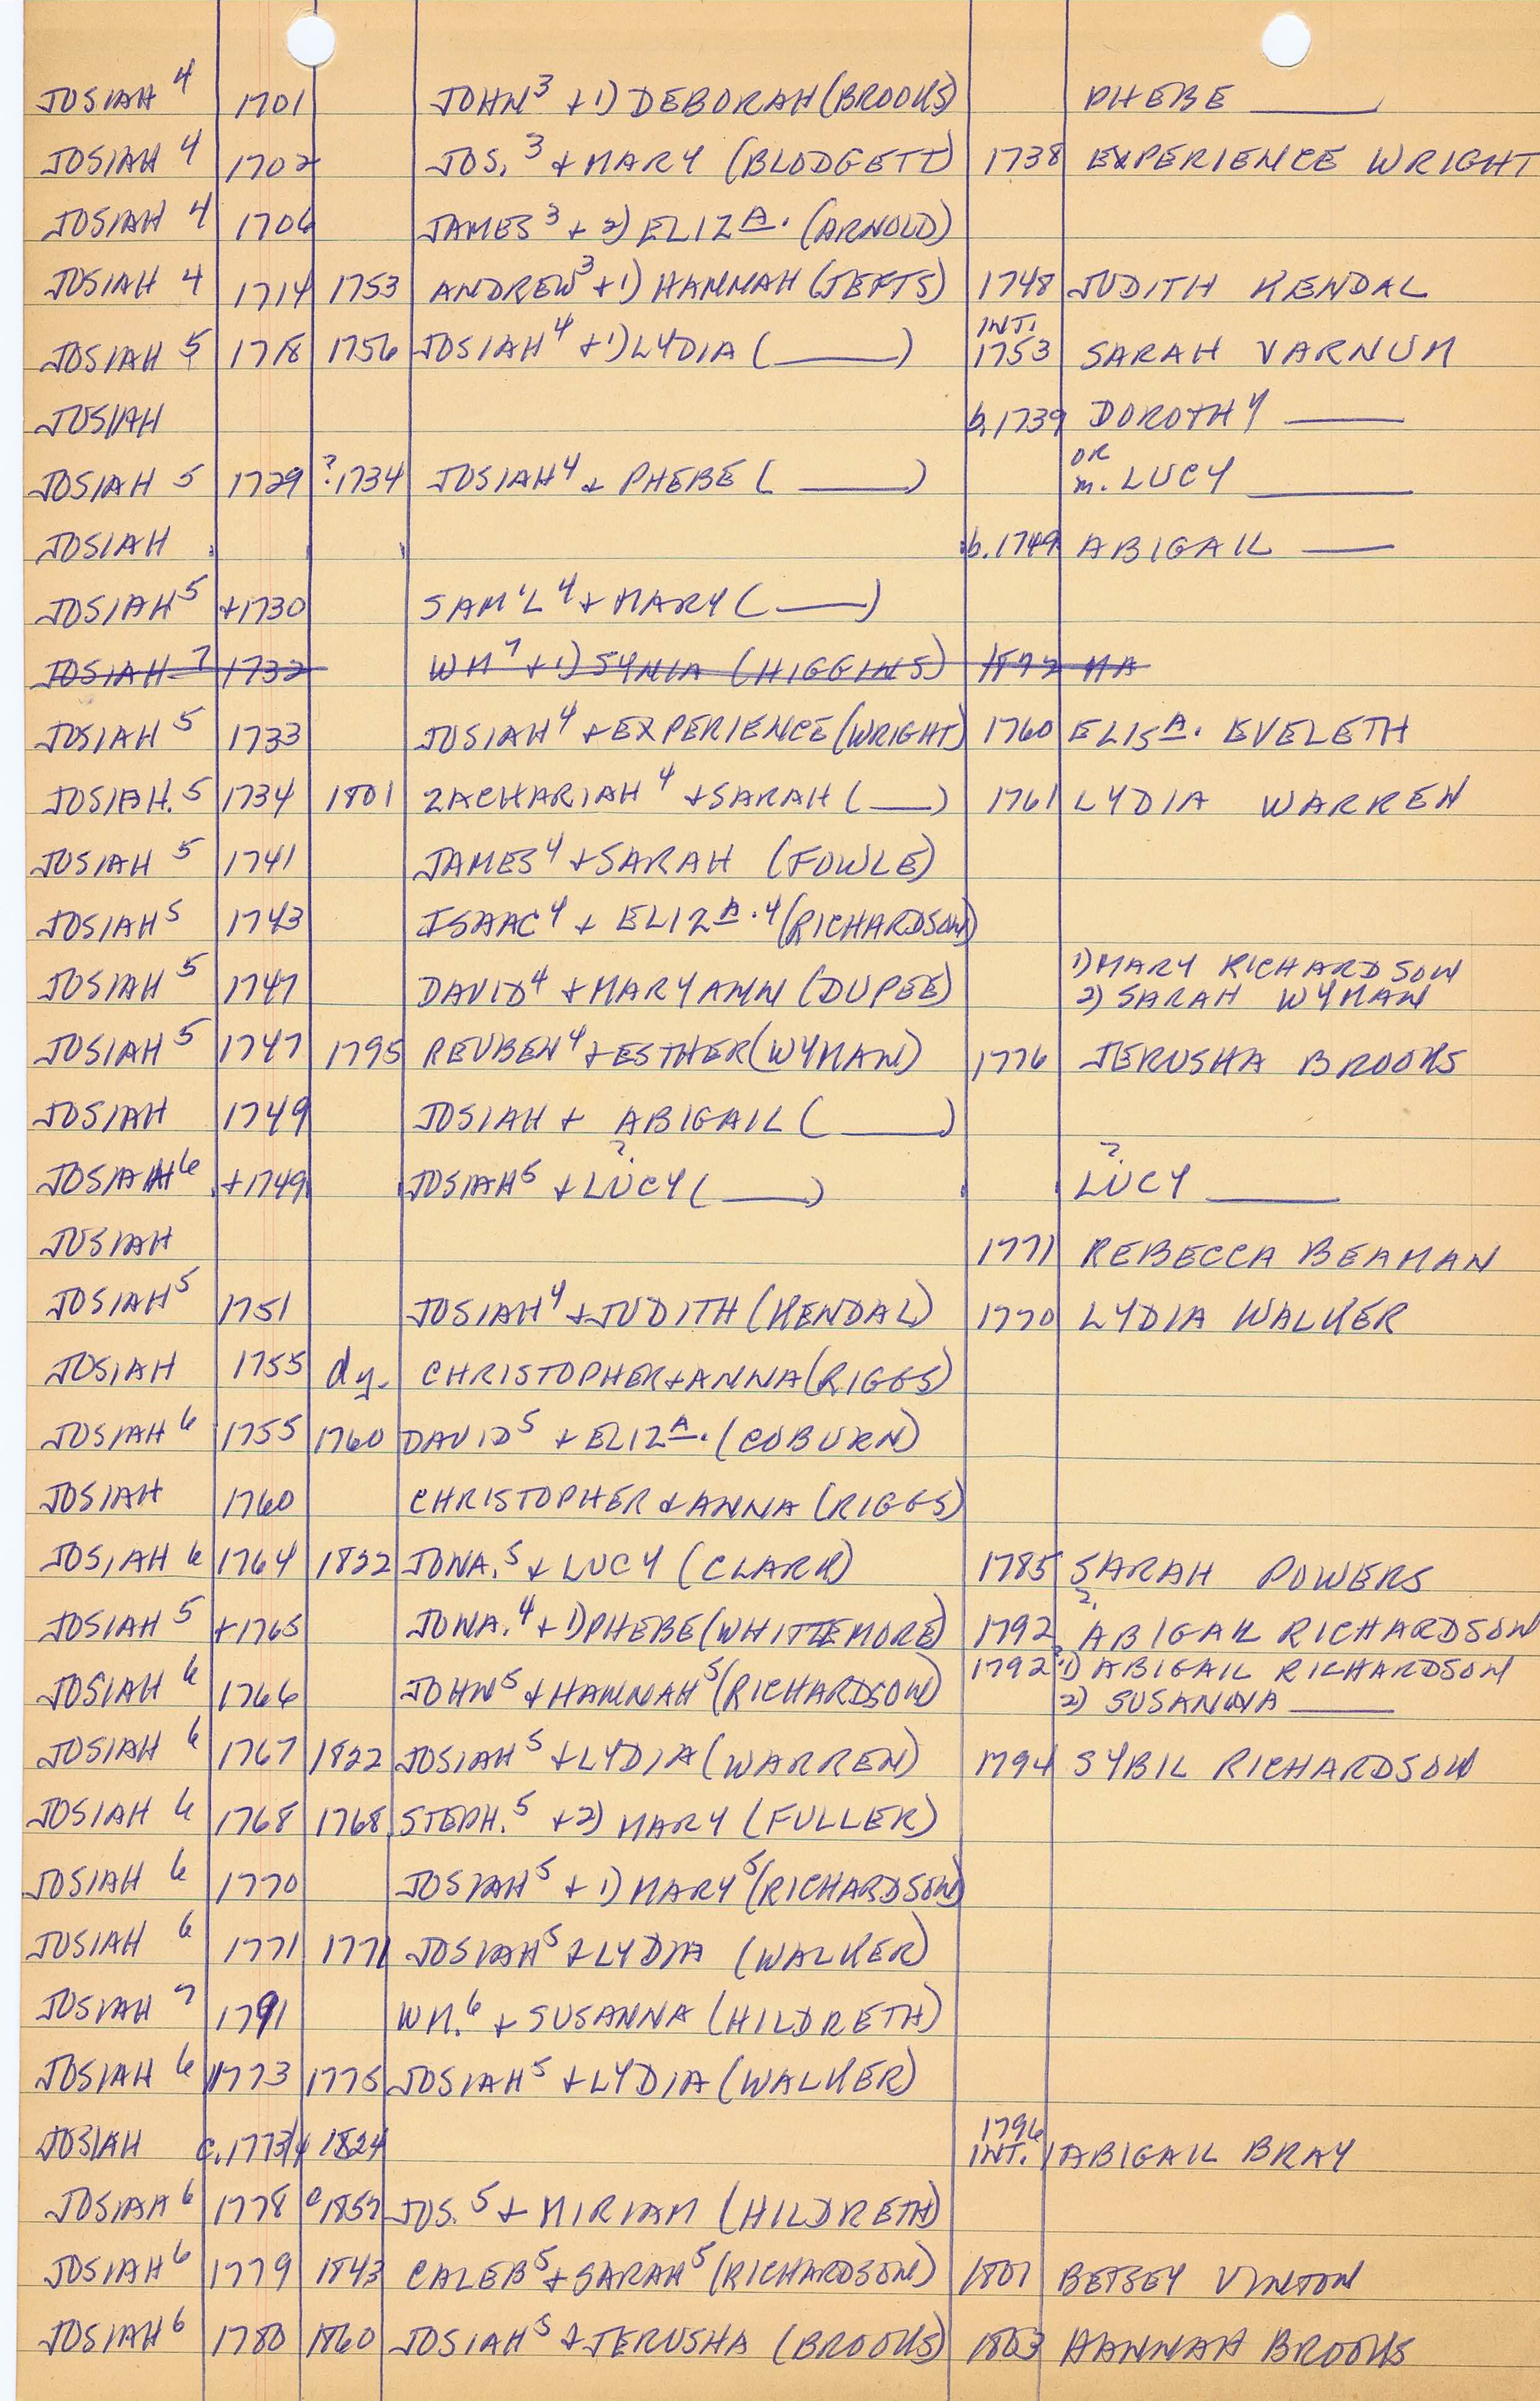 JOSIAH 4 1701 JOHN 3 + 1) DEBORAH (BROOKS) PHEBE ____
JOSIAH 4 1702 JOS. 3 + MARY (BLODGETT) 1738 EXPERIENCE WRIGHT
JOSIAH 4 1706 JAMES 3 + 2) ELIZA. (ARNOLD)
JOSIAH 4 1714 1753 ANDREW 3 + 1) HANNAH (JEFTS) 1748 JUDITH KENDAL
JOSIAH 5 1718 1756 JOSIAH 4 + 1) LYDIA (____) INT. 1753 SARAH VARNUM
JOSIAH b. 1739 DOROTHY ____
JOSIAH 5 1729 ?1734 JOSIAH 4 + PHEBE (____) OR m. LUCY ____
JOSIAH b. 1749 ABIGAIL ____
JOSIAH 5 +1730 SAM'L 4 + MARY (____)
JOSIAH 7 1732 WM 7 + 1) SYNIA (HIGGINS) 1872 MA
JOSIAH 5 1733 JOSIAH 4 + EXPERIENCE (WRIGHT) 1760 ELISA. EVELETH
JOSIAH. 5 1734 1801 ZACHARIAH 4 + SARAH (____) 1761 LYDIA WARREN
JOSIAH 5 1741 JAMES 4 + SARAH (FOWLE)
JOSIAH 5 1743 ISAAC 4 + ELIZA. 4 (RICHARDSON)
JOSIAH 5 1747 DAVID 4 + MARY ANN (DUPEE) 1) MARY RICHARDSON
2) SARAH WYMAN
JOSIAH 5 1747 1795 REUBEN 4 + ESTHER (WYMAN) 1776 JERUSHA BROOKS
JOSIAH 1749 JOSIAH + ABIGAIL (____)
JOSIAH 6 +1749 JOSIAH 5 + ?LUCY (____) ?LUCY ____
JOSIAH 1771 REBECCA BEAMAN
JOSIAH 5 1751 JOSIAH 4 + JUDITH (KENDAL) 1770 LYDIA WALKER
JOSIAH 1755 dy. CHRISTOPHER + ANNA (RIGGS)
JOSIAH 6 1755 1760 DAVID 5 + ELIZA. (COBURN)
JOSIAH 1760 CHRISTOPHER + ANNA (RIGGS)
JOSIAH 6 1764 1832 JONA. 5 + LUCY (CLARK) 1785 SARAH POWERS
JOSIAH 5 +1765 JONA. 4 + 1) PHEBE (WHITTEMORE) 1792 ? ABIGAIL RICHARDSON
JOSIAH 6 1766 JOHN 5 + HANNAH 5 (RICHARDSON) 1792 ?1) ABIGAIL RICHARDSON
2) SUSANNA ____
JOSIAH 6 1767 1822 JOSIAH 5 + LYDIA (WARREN) 1794 SYBIL RICHARDSON
JOSIAH 6 1768 1768 STEPH. 5 + 2) MARY (FULLER)
JOSIAH 6 1770 JOSIAH 5 + 1) MARY 5 (RICHARDSON)
JOSIAH 6 1771 1771 JOSIAH 5 + LYDIA (WALKER)
JOSIAH 7 1791 WM. 6 + SUSANNA (HILDRETH)
JOSIAH 6 1773 1775 JOSIAH 5 + LYDIA (WALKER)
JOSIAH c. 1773/4 1824 1796 INT. ABIGAIL BRAY
JOSIAH 6 1778 c1857 JOS. 5 + MIRIAM (HILDRETH)
JOSIAH 6 1779 1843 CALEB 5 + SARAH 5 (RICHARDSON) 1801 BETSEY VINTON
JOSIAH 6 1780 1860 JOSIAH 5 + JERUSHA (BROOKS) 1803 HANNAH BROOKS